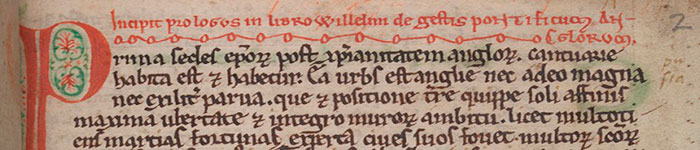 Incipit prologus in libro Willelmi de gestis pontificum an-
glorum.
Prima sedes ep̄orꝫ post xp̄ianitatem anglorꝫ. cantuarie
habita est ⁊ habetur. Ea urbs est anglie nec adeo magna
nec exilit̄ parua. que ⁊ positione t̄re quippe soli affinis
maxima ubertate ⁊ integro murorꝫ ambitu. licet multoti
ens martias fortunas experta ciues suos fouet. multorꝫ sc̄orꝫ
2